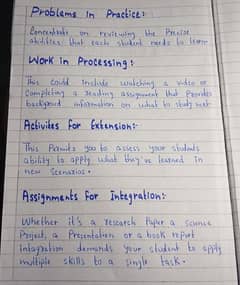 Problems in Practice:
Concentrate on reviewing the Precise
abilities that each student needs to learn
Work in Processing:
This could include watching a video or
Completing a reading assignment that Provides
backgroud information on what to study next
Activites for Extension:-
This Permits you to assess your students
ability to apply what they've learned in
new Scenarios.
Assignments for Integration:-
Whether it's a research Paper a science
Project, a Presentation or a book report
intagration demands your student to apply
multiple skills to a single task.